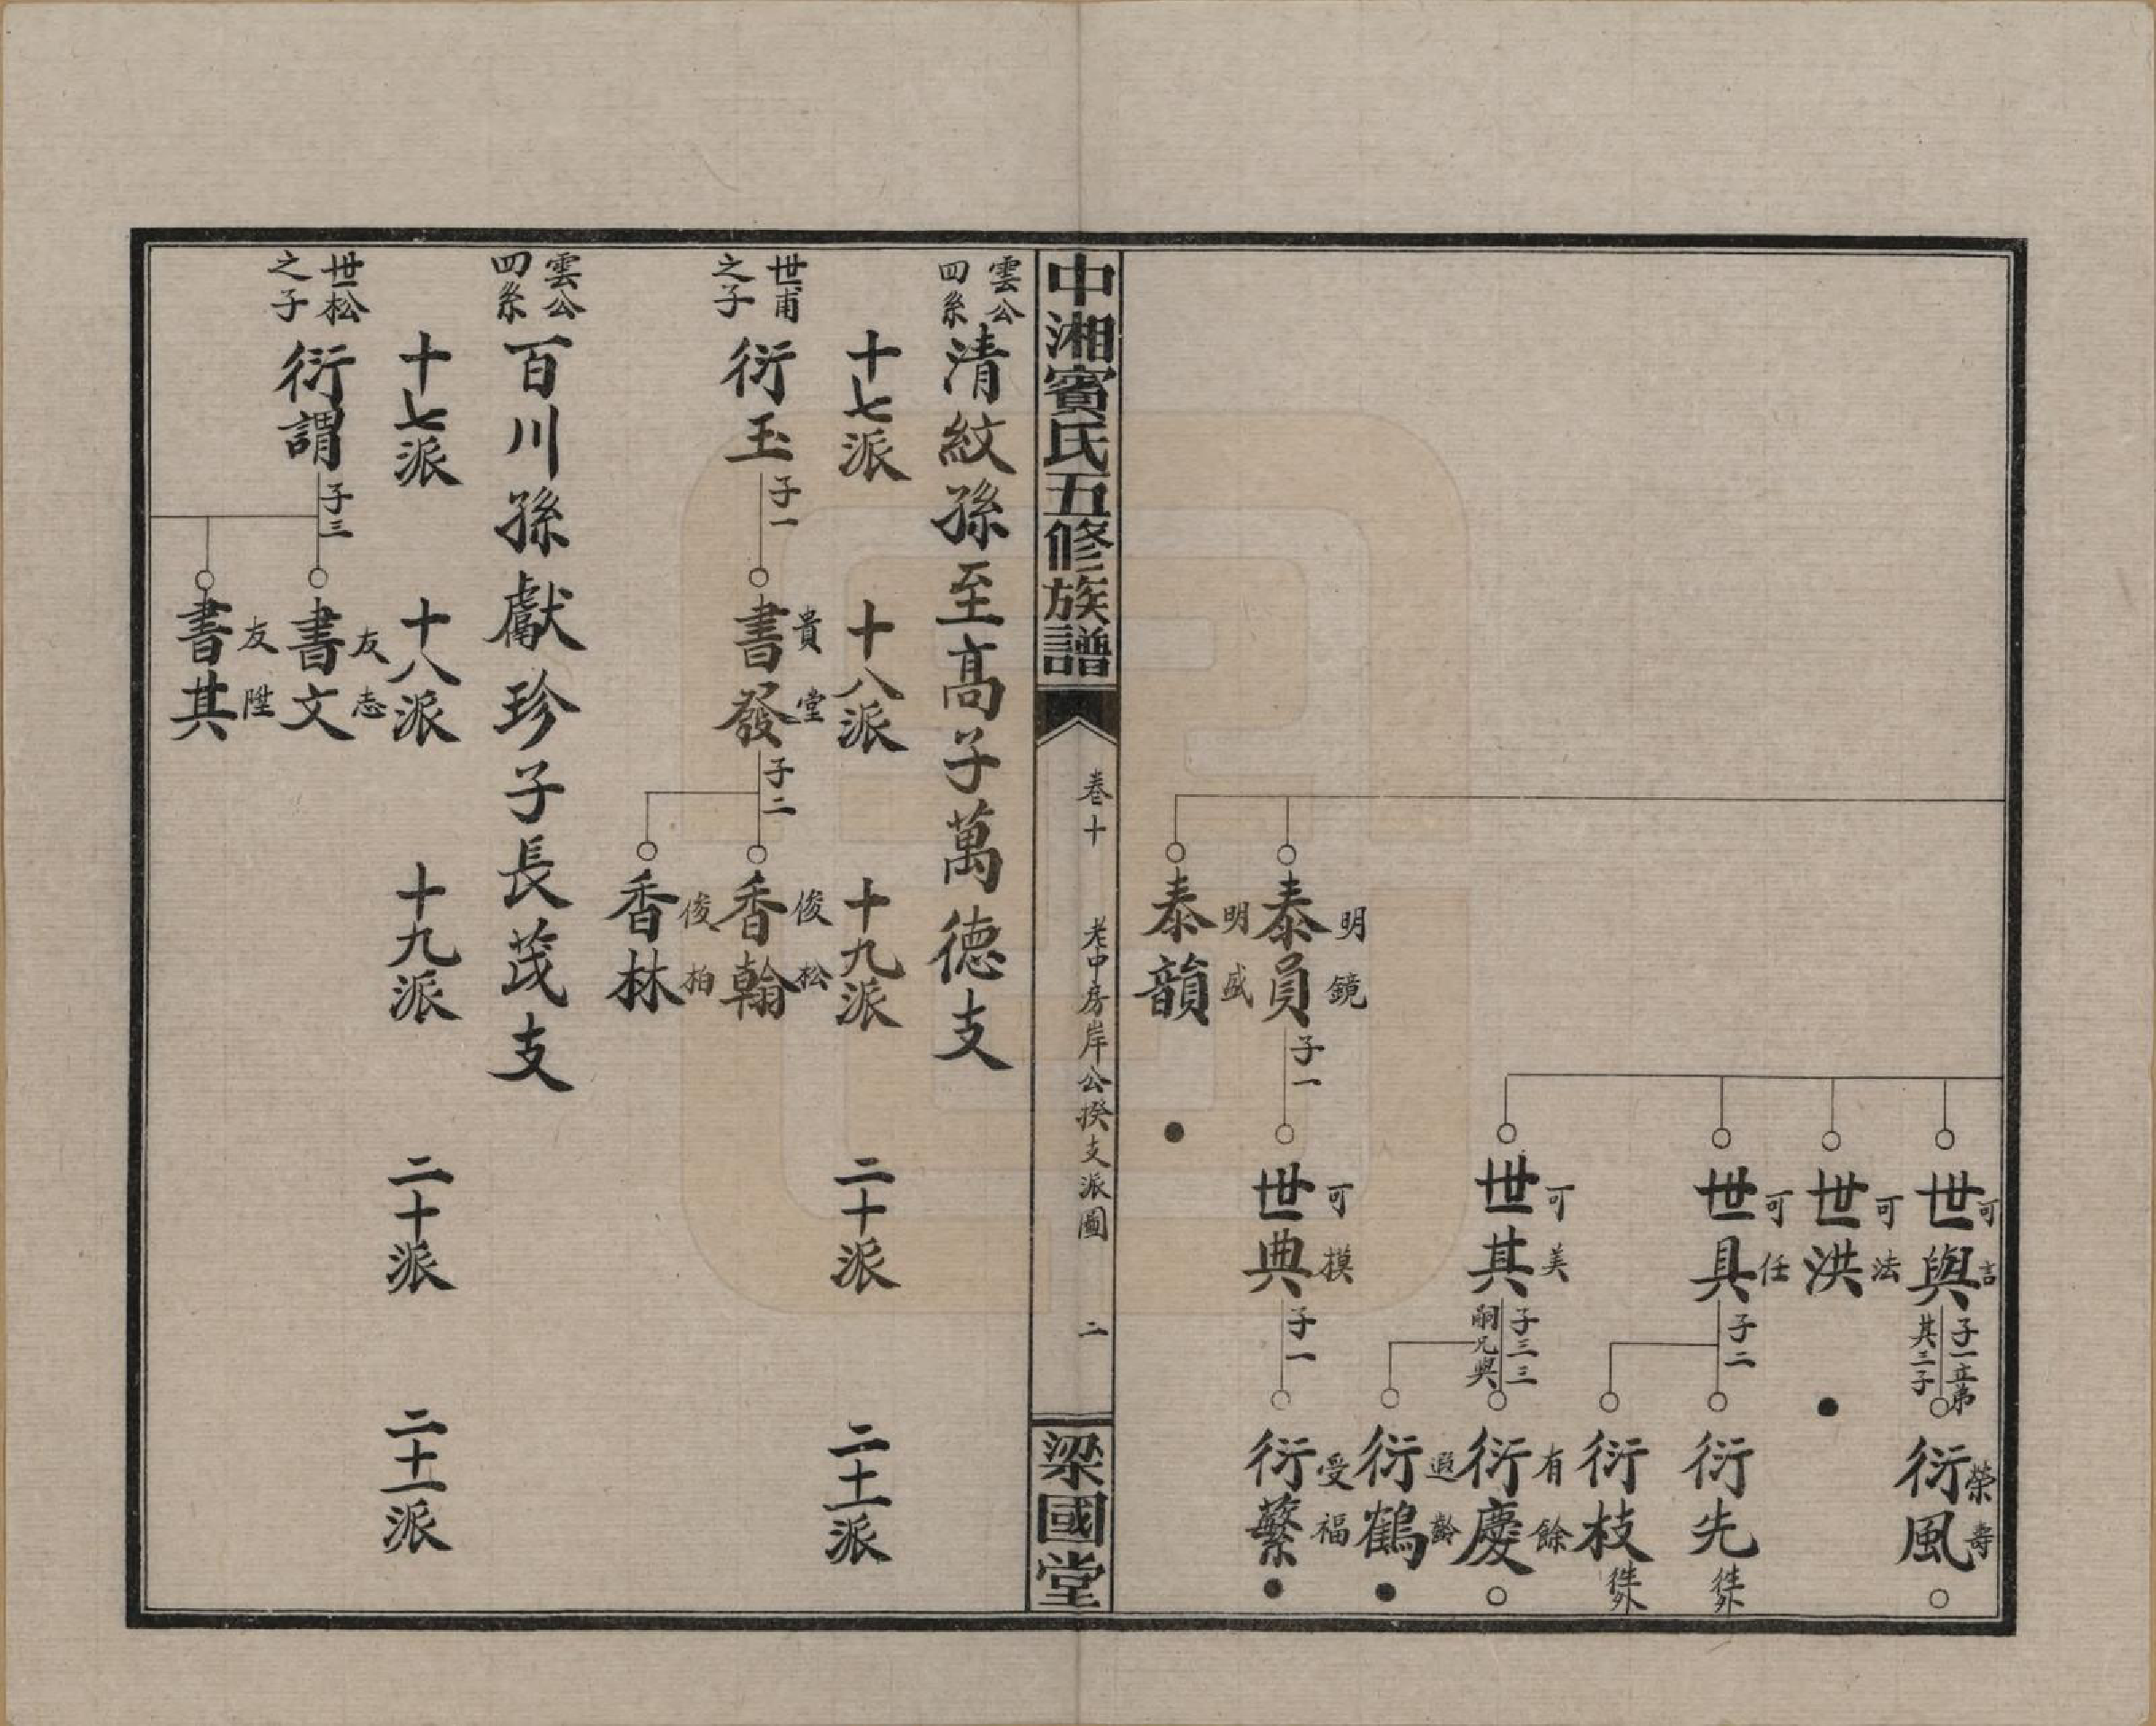 世與 可言 子一立弟其三子
衍風 榮壽
世洪 可法
世具 可任 子二
衍先 徙外
衍枝 徙外
世其 可美 子三三嗣兄與
衍慶 有餘
衍鶴 遐齡
泰員 明鏡 子一
世典 可模 子一
衍蘩 受福
泰韻 明盛
中湘賓氏五修族譜
卷十 老中房岸公揆支派圖 二
梁國堂
雲公四系 清紋孫至高子萬德支
十七派 十八派 十九派 二十派 二十一派
世甫之子 衍玉 子一
書發 貴堂 子二
香翰 俊松
香林 俊柏
雲公四系 百川孫獻珍子長茂支
十七派 十八派 十九派 二十派 二十一派
世松之子 衍謂 子三
書文 友志
書其 友陞